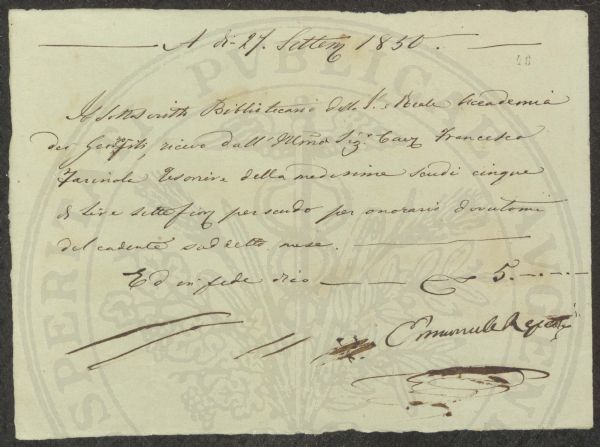 A di 27. Settem 1850.
48
Io sottoscritto Bibliotecario della I. e Reale Accademia
dei Georgofili, ricevo dall' Illmo Sig. Cav. Francesco
Farinola Tesoriere della medesima scudi cinque
di Lire sette fior. per scudo per onorario dovutomi
del cadente suddetto mese.
Ed in fede dico 5.
Emanuele Repetti
PUBLICAE
PROSPERI